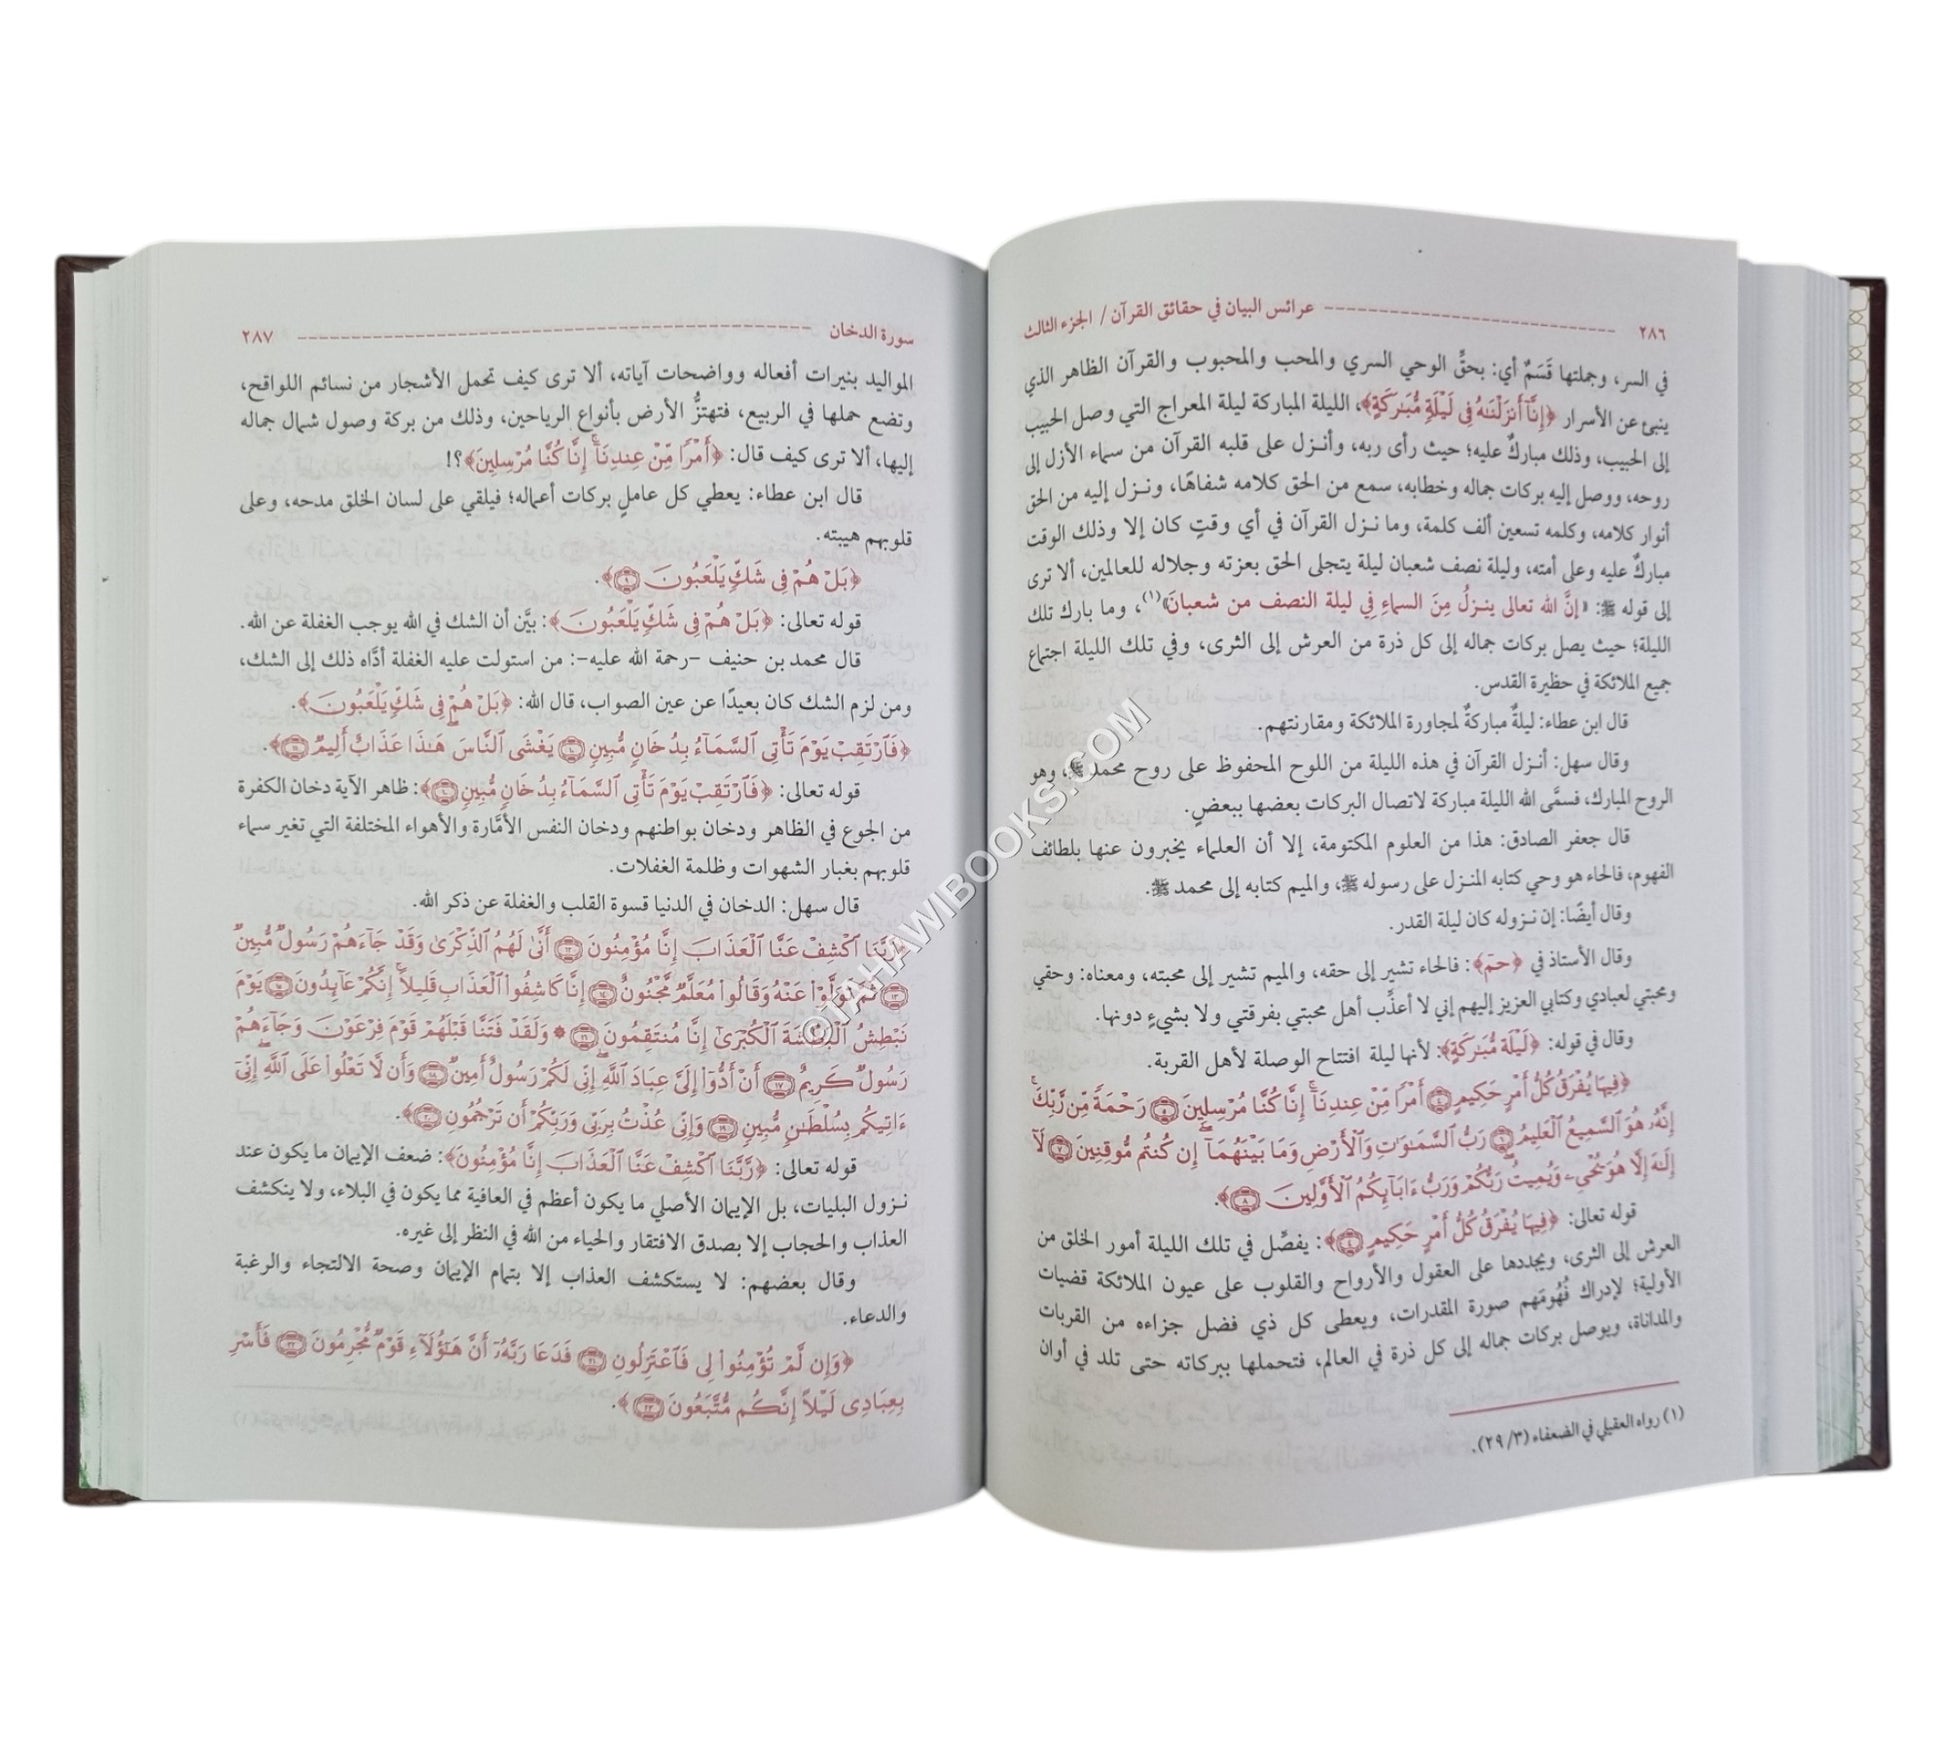 ٢٨٦ ---------------------- عرائس البيان في حقائق القرآن / الجزء الثالث
في السر، وجملتها قَسَمٌ أي: بحقِّ الوحي السري والمحب والمحبوب والقرآن الظاهر الذي
ينبئ عن الأسرار ﴿إِنَّآ أَنزَلْنَٰهُ فِى لَيْلَةٍ مُّبَٰرَكَةٍ﴾، الليلة المباركة ليلة المعراج التي وصل الحبيب
إلى الحبيب، وذلك مباركٌ عليه؛ حيث رأى ربه، وأنـزل على قلبه القرآن من سماء الأزل إلى
روحه، ووصل إليه بركات جماله وخطابه، سمع من الحق كلامه شفاهًا، ونـزل إليه من الحق
أنوار كلامه، وكلمه تسعين ألف كلمة، وما نـزل القرآن في أي وقتٍ كان إلا وذلك الوقت
مباركٌ عليه وعلى أمته، وليلة نصف شعبان ليلة يتجلى الحق بعزته وجلاله للعالمين، ألا ترى
إلى قوله ﷺ: «إنَّ الله تعالى ينـزلُ مِنَ السماءِ فِي ليلة النصف من شعبانَ»(١)، وما بارك تلك
الليلة؛ حيث يصل بركات جماله إلى كل ذرة من العرش إلى الثرى، وفي تلك الليلة اجتماع
جميع الملائكة في حظيرة القدس.
قال ابن عطاء: ليلةٌ مباركةٌ لمجاورة الملائكة ومقارنتهم.
وقال سهل: أنـزل القرآن في هذه الليلة من اللوح المحفوظ على روح محمد ﷺ، وهو
الروح المبارك، فسمَّى الله الليلة مباركة لاتصال البركات بعضها ببعضٍ.
قال جعفر الصادق: هذا من العلوم المكتومة، إلا أن العلماء يخبرون عنها بلطائف
الفهوم، فالحاء هو وحي كتابه المنـزل على رسوله ﷺ، والميم كتابه إلى محمد ﷺ.
وقال أيضًا: إن نـزوله كان ليلة القدر.
وقال الأستاذ في ﴿حمٓ﴾: فالحاء تشير إلى حقه، والميم تشير إلى محبته، ومعناه: وحقي
ومحبتي لعبادي وكتابي العزيز إليهم إني لا أعذِّب أهل محبتي بفرقتي ولا بشيءٍ دونها.
وقال في قوله: ﴿لَيْلَةٍ مُّبَٰرَكَةٍ﴾: لأنها ليلة افتتاح الوصلة لأهل القربة.
﴿فِيهَا يُفْرَقُ كُلُّ أَمْرٍ حَكِيمٍ ۝٤ أَمْرًا مِّنْ عِندِنَآ ۚ إِنَّا كُنَّا مُرْسِلِينَ ۝٥ رَحْمَةً مِّن رَّبِّكَ ۚ
إِنَّهُۥ هُوَ ٱلسَّمِيعُ ٱلْعَلِيمُ ۝٦ رَبُّ ٱلسَّمَٰوَٰتِ وَٱلْأَرْضِ وَمَا بَيْنَهُمَآ ۖ إِن كُنتُم مُّوقِنِينَ ۝٧ لَآ
إِلَٰهَ إِلَّا هُوَ يُحْىِۦ وَيُمِيتُ ۖ رَبُّكُمْ وَرَبُّ ءَابَآئِكُمُ ٱلْأَوَّلِينَ ۝٨﴾.
قوله تعالى: ﴿فِيهَا يُفْرَقُ كُلُّ أَمْرٍ حَكِيمٍ ۝٤﴾: يفصِّل في تلك الليلة أمور الخلق من
العرش إلى الثرى، ويجددها على العقول والأرواح والقلوب على عيون الملائكة قضيات
الأولية؛ لإدراك فُهُومَهم صورة المقدرات، ويعطى كل ذي فضل جزاءه من القربات
والمداناة، ويوصل بركات جماله إلى كل ذرة في العالم، فتحملها ببركاته حتى تلد في أوان
(١) رواه العقيلي في الضعفاء (٢٩/٣).
سورة الدخان ---------------------- ٢٨٧
المواليد بنيرات أفعاله وواضحات آياته، ألا ترى كيف تحمل الأشجار من نسائم اللواقح،
وتضع حملها في الربيع، فتهتزُّ الأرض بأنواع الرياحين، وذلك من بركة وصول شمال جماله
إليها، ألا ترى كيف قال: ﴿أَمْرًا مِّنْ عِندِنَآ ۚ إِنَّا كُنَّا مُرْسِلِينَ﴾؟!
قال ابن عطاء: يعطي كل عاملٍ بركات أعماله؛ فيلقي على لسان الخلق مدحه، وعلى
قلوبهم هيبته.
﴿بَلْ هُمْ فِى شَكٍّ يَلْعَبُونَ ۝٩﴾.
قوله تعالى: ﴿بَلْ هُمْ فِى شَكٍّ يَلْعَبُونَ﴾: بيَّن أن الشك في الله يوجب الغفلة عن الله.
قال محمد بن حنيف -رحمة الله عليه-: من استولت عليه الغفلة أدَّاه ذلك إلى الشك،
ومن لزم الشك كان بعيدًا عن عين الصواب، قال الله: ﴿بَلْ هُمْ فِى شَكٍّ يَلْعَبُونَ﴾.
﴿فَٱرْتَقِبْ يَوْمَ تَأْتِى ٱلسَّمَآءُ بِدُخَانٍ مُّبِينٍ ۝١٠ يَغْشَى ٱلنَّاسَ ۖ هَٰذَا عَذَابٌ أَلِيمٌ ۝١١﴾.
قوله تعالى: ﴿فَٱرْتَقِبْ يَوْمَ تَأْتِى ٱلسَّمَآءُ بِدُخَانٍ مُّبِينٍ ۝١٠﴾: ظاهر الآية دخان الكفرة
من الجوع في الظاهر ودخان بواطنهم ودخان النفس الأمَّارة والأهواء المختلفة التي تغير سماء
قلوبهم بغبار الشهوات وظلمة الغفلات.
قال سهل: الدخان في الدنيا قسوة القلب والغفلة عن ذكر الله.
﴿رَّبَّنَا ٱكْشِفْ عَنَّا ٱلْعَذَابَ إِنَّا مُؤْمِنُونَ ۝١٢ أَنَّىٰ لَهُمُ ٱلذِّكْرَىٰ وَقَدْ جَآءَهُمْ رَسُولٌ مُّبِينٌ
۝١٣ ثُمَّ تَوَلَّوْا۟ عَنْهُ وَقَالُوا۟ مُعَلَّمٌ مَّجْنُونٌ ۝١٤ إِنَّا كَاشِفُوا۟ ٱلْعَذَابِ قَلِيلًا ۚ إِنَّكُمْ عَآئِدُونَ ۝١٥ يَوْمَ
نَبْطِشُ ٱلْبَطْشَةَ ٱلْكُبْرَىٰٓ إِنَّا مُنتَقِمُونَ ۝١٦ ۞ وَلَقَدْ فَتَنَّا قَبْلَهُمْ قَوْمَ فِرْعَوْنَ وَجَآءَهُمْ
رَسُولٌ كَرِيمٌ ۝١٧ أَنْ أَدُّوٓا۟ إِلَىَّ عِبَادَ ٱللَّهِ ۖ إِنِّى لَكُمْ رَسُولٌ أَمِينٌ ۝١٨ وَأَن لَّا تَعْلُوا۟ عَلَى ٱللَّهِ ۖ إِنِّىٓ
ءَاتِيكُم بِسُلْطَٰنٍ مُّبِينٍ ۝١٩ وَإِنِّى عُذْتُ بِرَبِّى وَرَبِّكُمْ أَن تَرْجُمُونِ ۝٢٠﴾.
قوله تعالى: ﴿رَّبَّنَا ٱكْشِفْ عَنَّا ٱلْعَذَابَ إِنَّا مُؤْمِنُونَ﴾: ضعف الإيمان ما يكون عند
نـزول البليات، بل الإيمان الأصلي ما يكون أعظم في العافية مما يكون في البلاء، ولا ينكشف
العذاب والحجاب إلا بصدق الافتقار والحياء من الله في النظر إلى غيره.
وقال بعضهم: لا يستكشف العذاب إلا بتمام الإيمان وصحة الالتجاء والرغبة
والدعاء.
﴿وَإِن لَّمْ تُؤْمِنُوا۟ لِى فَٱعْتَزِلُونِ ۝٢١ فَدَعَا رَبَّهُۥٓ أَنَّ هَٰٓؤُلَآءِ قَوْمٌ مُّجْرِمُونَ ۝٢٢ فَأَسْرِ
بِعِبَادِى لَيْلًا إِنَّكُم مُّتَّبَعُونَ ۝٢٣﴾.
©TAHAWIBOOKS.COM